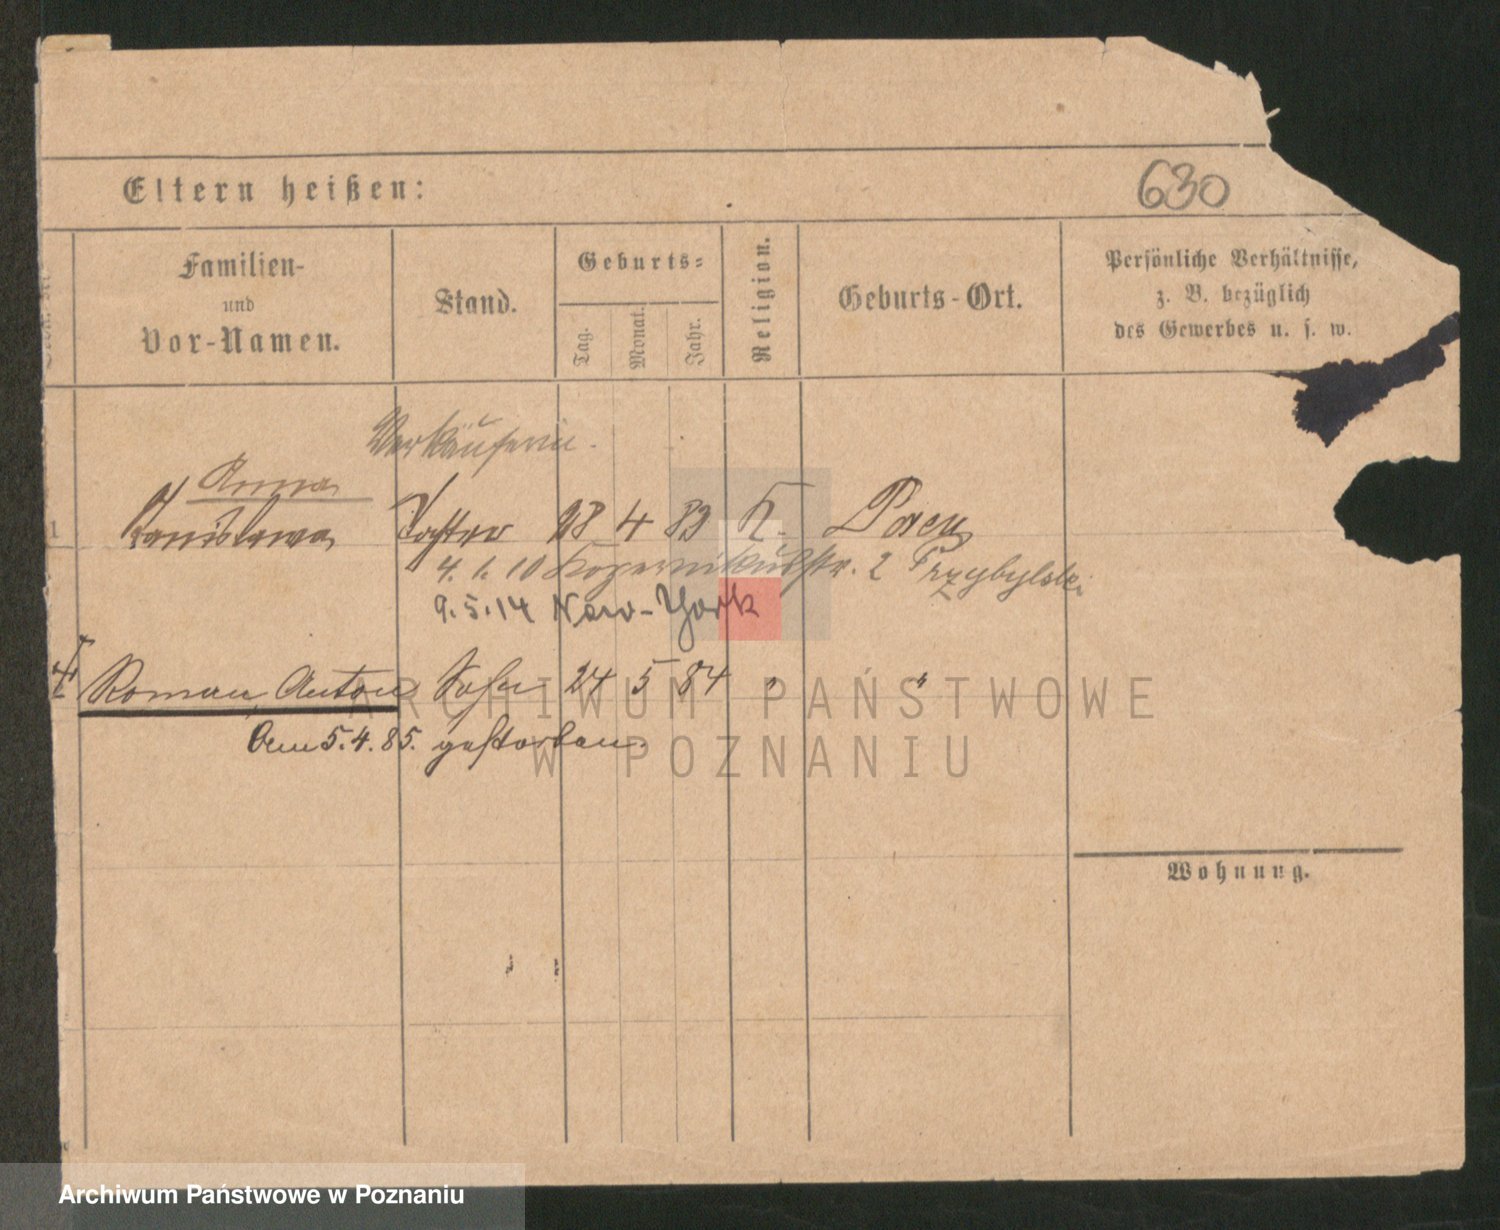 Eltern heißen:
630
Familien-
und
Vor-Namen.
Stand.
Geburts-
Tag.
Monat.
Jahr.
Religion.
Geburts-Ort.
Persönliche Verhältnisse,
z. B. bezüglich
des Gewerbes u. s. w.
Verkäuferin.
Anna
1 Stanislawa Tochter 28 4 83 K. Posen
4. 1. 10 Kopernikusstr. 2 Przybylski
9. 5. 14 New-York
Roman Anton Sohn 24 5 84 " "
Am 5. 4. 85. gestorben.
ARCHIWUM PAŃSTWOWE
W POZNANIU
Wohnung.
Archiwum Państwowe w Poznaniu